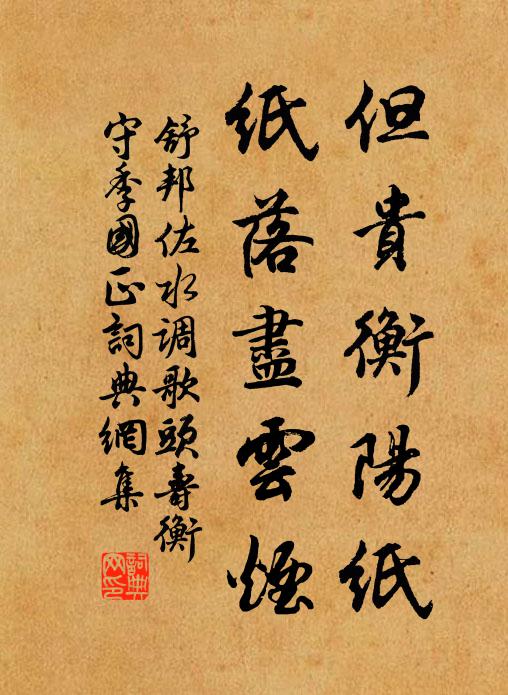 但貴衡陽紙
紙落盡雲煙
舒邦佐水调歌頭壽衡
守季國正詞典網集
詞典網印